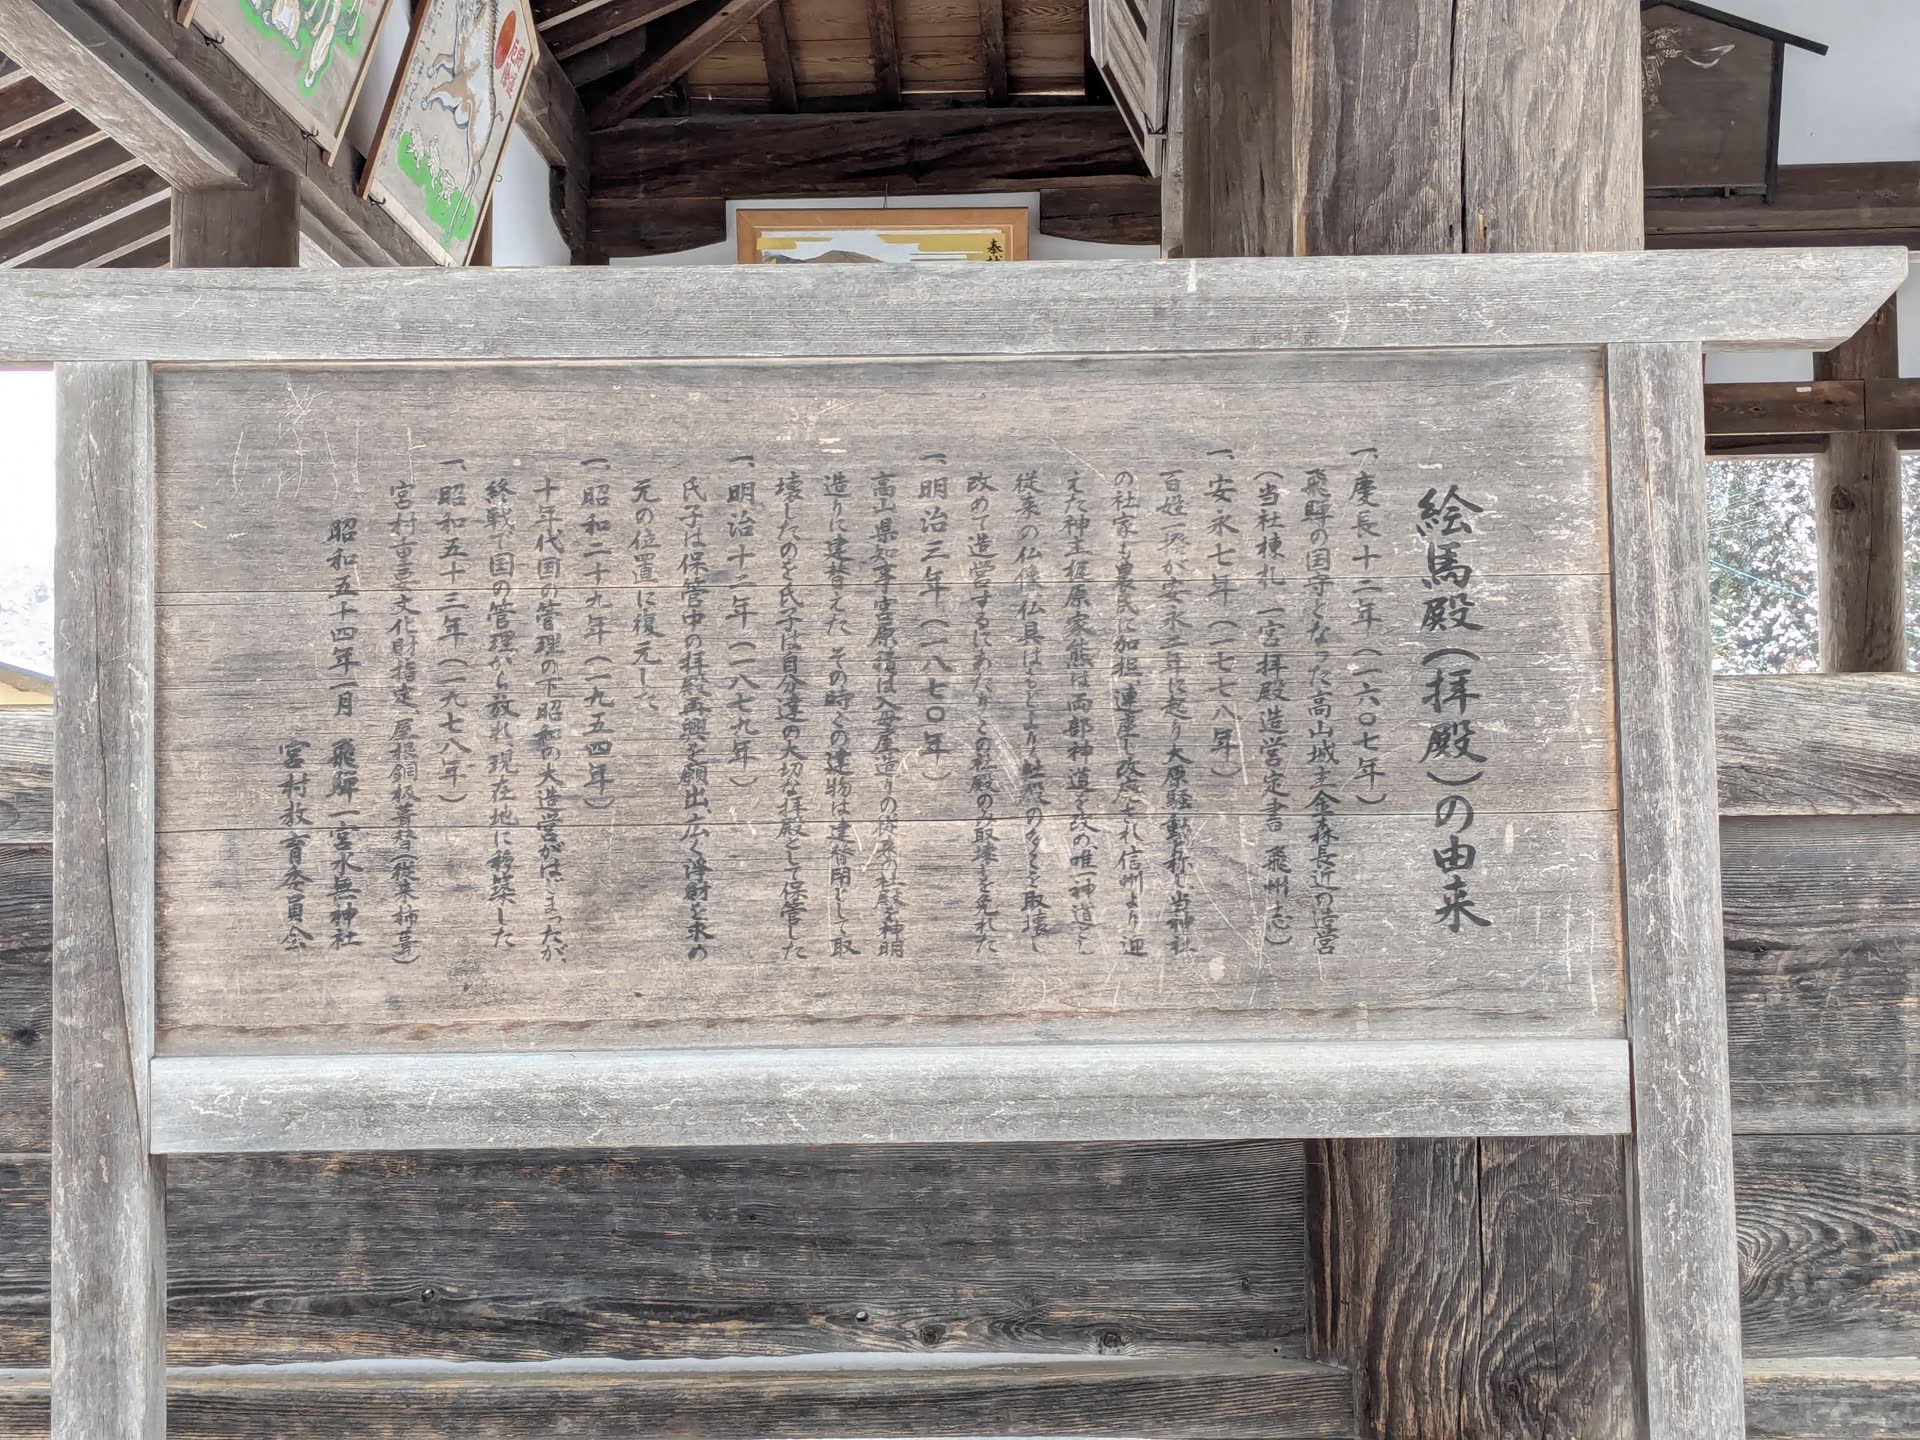 絵馬殿(拝殿)の由来
一、慶長十二年(一六〇七年)
飛騨の国守となった高山城主金森長近の造営
(当社棟札 一宮拝殿造営定書 飛州志)
一、安永七年(一七七八年)
百姓一揆が安永二年に起り大原騒動と称し、当神社
の社家も農民に加担、連座し改廃され信州より迎
えた神主梶原家熊は両部神道を改め、唯一神道とし
従来の仏像、仏具はもとより社殿の多くを取壊し
改めて造営するにあたりこの社殿のみ取壊しを免れた
一、明治三年(一八七〇年)
高山県知事宮原積は入母屋造りの従来の社殿を神明
造りに建替えた その時この建物は建替用として取
壊したのを氏子は自分達の大切な拝殿として保管した
一、明治十二年(一八七九年)
氏子は保管中の拝殿再興を願出、広く浄財を求め
元の位置に復元した
一、昭和二十九年(一九五四年)
十年代国の管理の下昭和の大造営がはじまったが、
終戦で国の管理から放れ現在地に移築した
一、昭和五十三年(一九七八年)
宮村重要文化財指定、屋根銅板葺替(従来柿葺)
昭和五十四年一月 飛騨一宮水無神社
宮村教育委員会
奉